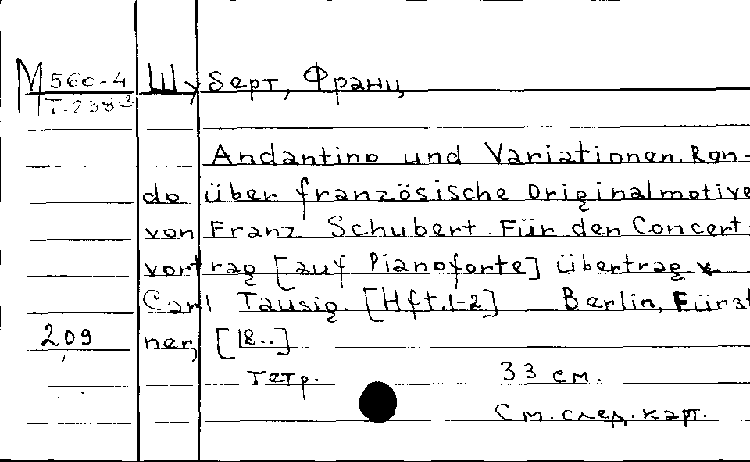 М 560-4 Шуберт, Франц
Т-238³
Andantino und Variationen. Ron-
do über französische Originalmotive
von Franz Schubert. Für den Concert-
vortrag [auf Pianoforte] übertrag v.
Carl Tausig. [Hft. 1-2] Berlin, Fürst
209 ner, [18..]
тетр. 33 см.
См. след. карт.